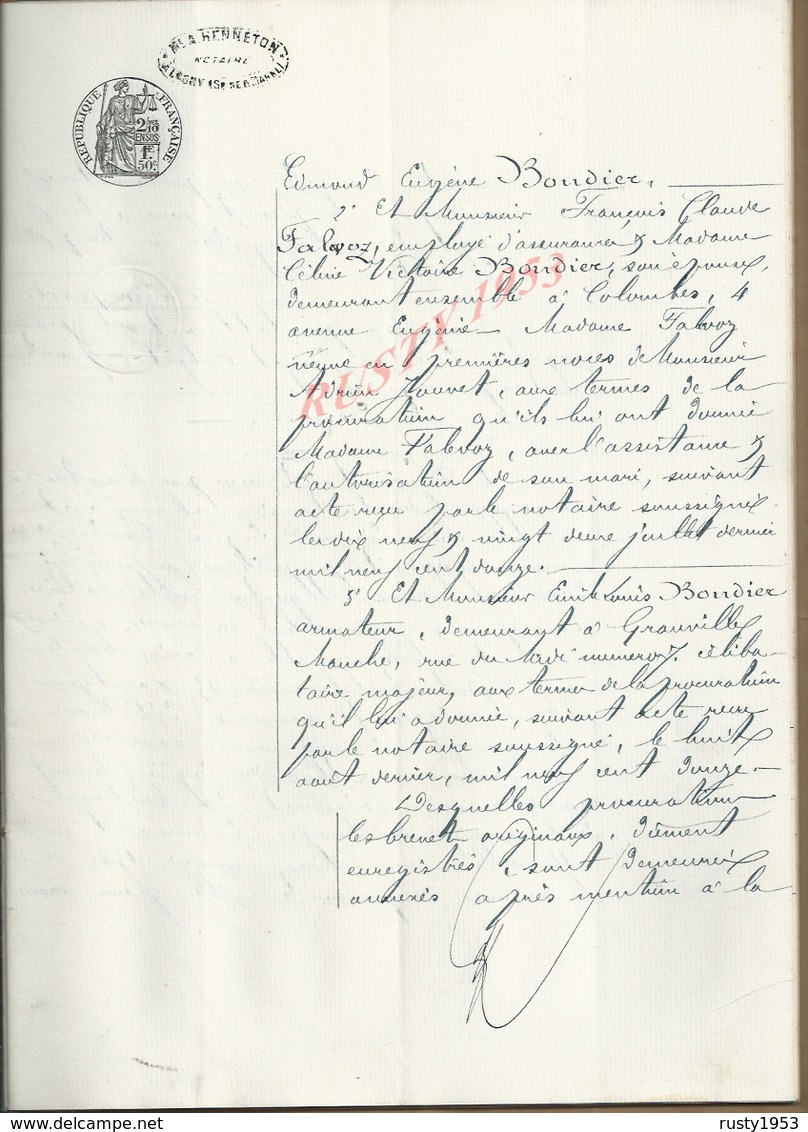 Me A. HENNETON
NOTAIRE
A LAGNY (SNE & MARNE)
RÉPUBLIQUE FRANÇAISE
2/10
EN SUS
1F.
50c
Edmond Eugène Boudier,
2° Et Monsieur François Claude
Falvoz, employé d'assurances & Madame
Céline Victoire Boudier, son épouse,
demeurant ensemble à Colombes, 4
avenue Eugénie — Madame Falvoz
veuve en premières noces de Monsieur
Adrien Jouvet, aux termes de la
procuration qu'ils lui ont donnée
Madame Falvoz, avec l'assistance &
l'autorisation de son mari, suivant
acte reçu par le notaire soussigné
les dix neuf & vingt deux juillet dernier
mil neuf cent douze. —
3° Et Monsieur Emile Louis Boudier
armateur, demeurant à Granville
Manche, rue du Midi numéro 7, céliba-
taire majeur, aux termes de la procuration
qu'il lui a donnée, suivant acte reçu
par le notaire soussigné, le huit
août dernier, mil neuf cent douze. —
Desquelles procurations
les brevets originaux, dûment
enregistrés, sont demeurés
annexés après mention à la
RUSTY 1953
rusty1953